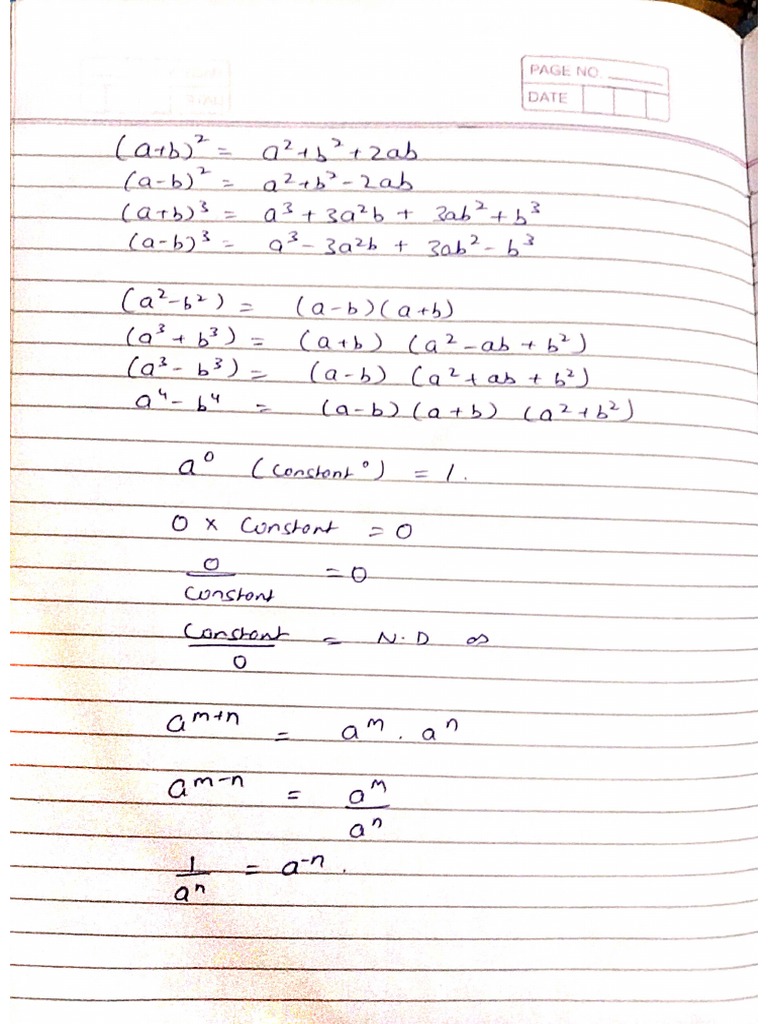 PAGE NO.
DATE
(a+b)² = a²+b²+2ab
(a-b)² = a²+b²-2ab
(a+b)³ = a³ + 3a²b + 3ab² + b³
(a-b)³ = a³ - 3a²b + 3ab² - b³
(a²-b²) = (a-b)(a+b)
(a³ + b³) = (a+b) (a² - ab + b²)
(a³ - b³) = (a-b) (a² + ab + b²)
a⁴ - b⁴ = (a-b) (a+b) (a²+b²)
a⁰ (constant⁰) = 1.
0 x Constant = 0
0/Constant = 0
Constant/0 = N.D ∞
aᵐ⁺ⁿ = aᵐ . aⁿ
aᵐ⁻ⁿ = aᵐ/aⁿ
1/aⁿ = a⁻ⁿ.